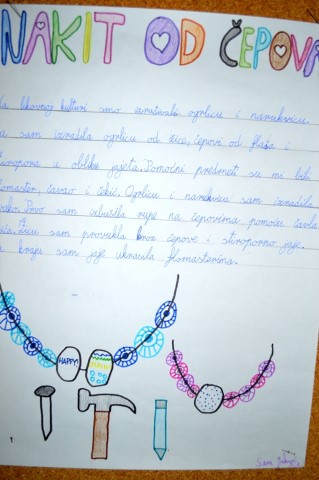 NAKIT OD ČEPOVA
Na likovnoj kulturi smo izrađivali ogrlicu i narukvicu.
sam izradila ogrlicu od žice, čepovi od flaša i
stiropora u obliku jajeta. Pomoćni predmeti su mi bili
flomaster, čavao i čekić. Ogrlicu i narukvicu sam izradila
ovako. Prvo sam izbušila rupe na čepovima pomoću čavla
Žicu sam provukla kroz čepove i stiroporno jaje.
kraju sam jaje ukrasila flomasterima.
HAPPY!
Sara